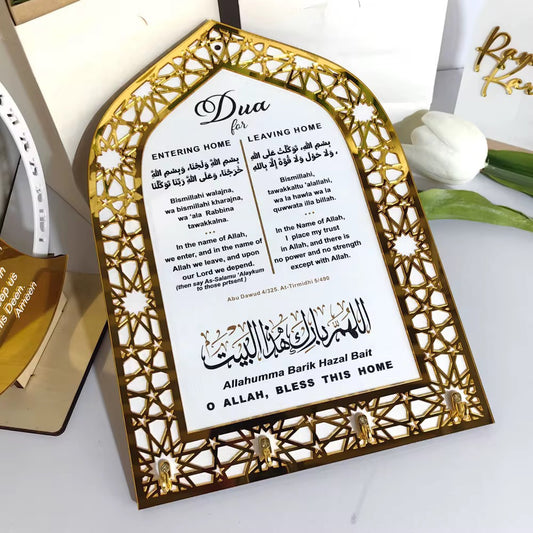 Dua
for
ENTERING HOME
بِسْمِ اللهِ وَلَجْنَا، وَبِسْمِ اللهِ
خَرَجْنَا، وَعَلَى اللهِ رَبِّنَا تَوَكَّلْنَا
Bismillahi walajna,
wa bismillahi kharajna,
wa 'ala Rabbina
tawakkalna.
In the name of Allah,
we enter, and in the name of
Allah we leave, and upon
our Lord we depend.
(then say As-Salamu 'Alaykum
to those prtsent )
LEAVING HOME
بِسْمِ اللهِ، تَوَكَّلْتُ عَلَى اللهِ
، وَلَا حَوْلَ وَلَا قُوَّةَ إِلَّا بِاللهِ
Bismillahi,
tawakkaltu 'alallahi,
wa la hawla wa la
quwwata illa billah.
In the Name of Allah,
I place my trust
in Allah, and there is
no power and no strength
except with Allah.
Abu Dawud 4/325. At-Tirmidhi 5/490
اللَّهُمَّ بَارِك هٰذَا البَيْت
Allahumma Barik Hazal Bait
O ALLAH, BLESS THIS HOME
Deen.
Ameen